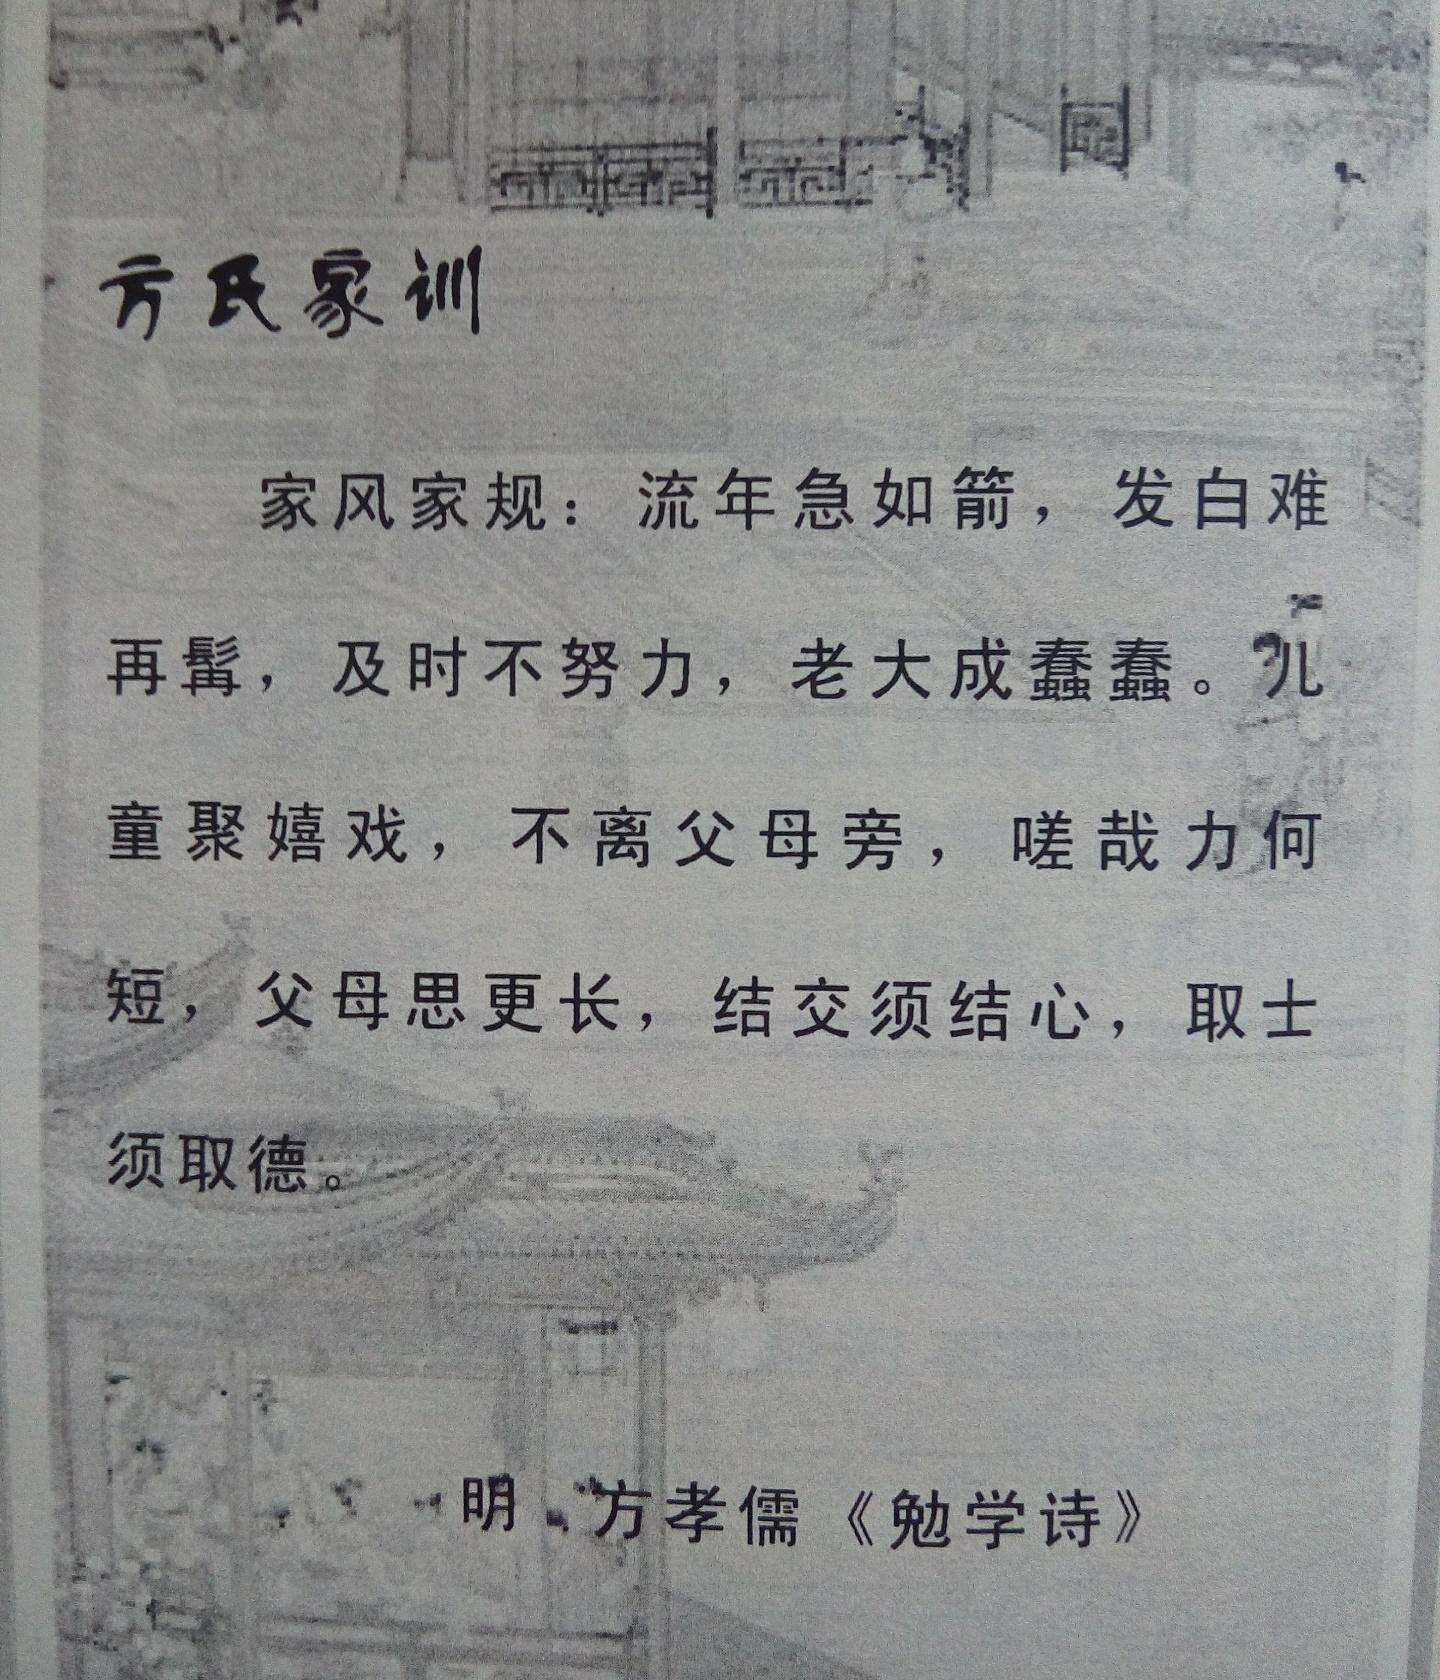 方氏家训
家风家规：流年急如箭，发白难
再髯，及时不努力，老大成蠢蠢。儿
童聚嬉戏，不离父母旁，嗟哉力何
短，父母思更长，结交须结心，取士
须取德。
明 方孝儒《勉学诗》